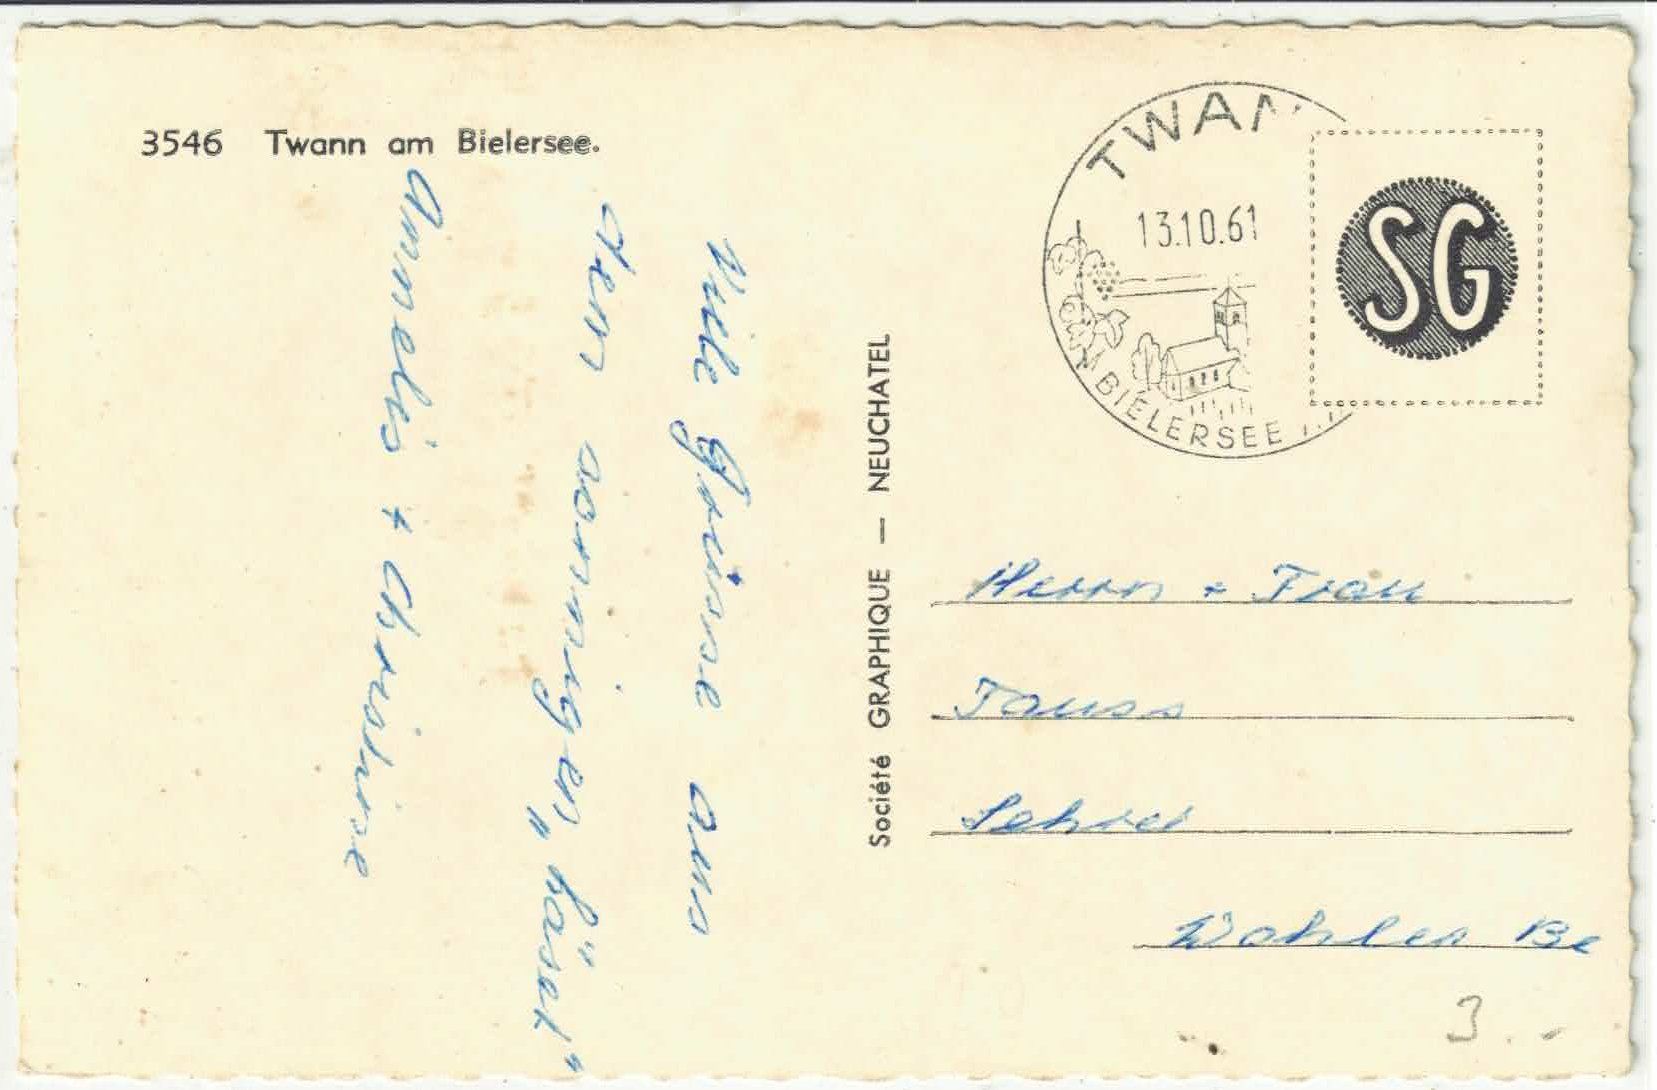 3546 Twann am Bielersee.
Viele Grüsse aus
dem sonnigen
Annelis + Christine
Société GRAPHIQUE — NEUCHATEL
TWAN
13.10.61
BIELERSEE
SG
Herrn + Frau
Tauss
Wohlen Be
3.-